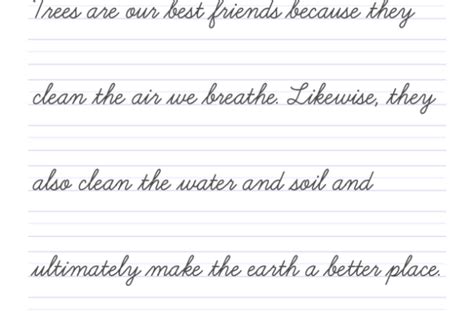 Trees are our best friends because they
clean the air we breathe. Likewise, they
also clean the water and soil and
ultimately make the earth a better place.